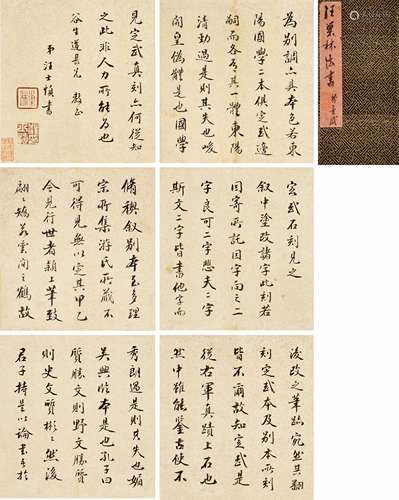 汪栗林法書
為別調亦具本色若東
陽國學二本俱定武遠
嗣而各有其一體東陽
清勁過是則其失也峻
開皇偽體是也國學
見定武真刻亦何從知
之此非人力所能為也
谷生道具兄 教正
弟汪士慎書
定武石刻見之
叙中塗改諸字此刻若
因寄所託因字向之二
字良可二字悲夫二字
斯文二字皆書他字而
脩禊叙別本至多理
宗所集游氏所藏不
可得見無以定其甲乙
今見行世者潁上筆致
翩翩矯若雲間之鶴故
後改之筆跡宛然其翻
刻定武本及別本所刻
皆不爾故知定武是
從右軍真蹟上石也
然中雖能鑒古使不
秀朗過是則其失也媚
吳興臨本是也孔子曰
質勝文則野文勝質
則史文質彬彬然後
君子持是以論書其於